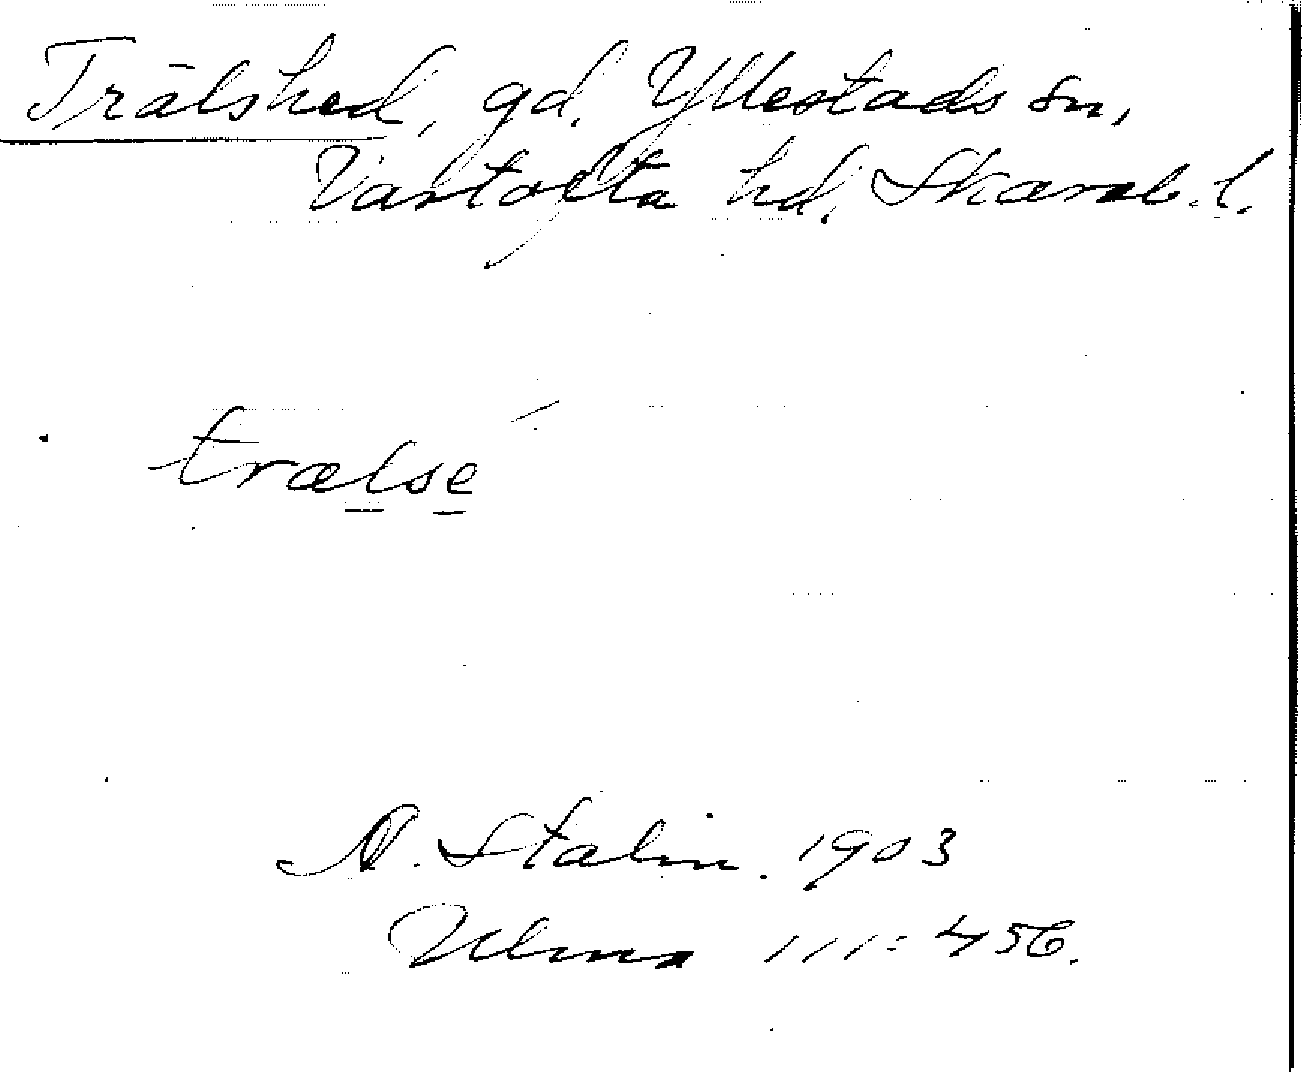 Trälshed, gd, Yllestads sn,
Vartofta hd, Skarab. l.
trælse
A. Stalin. 1903
Ulma 111:456.